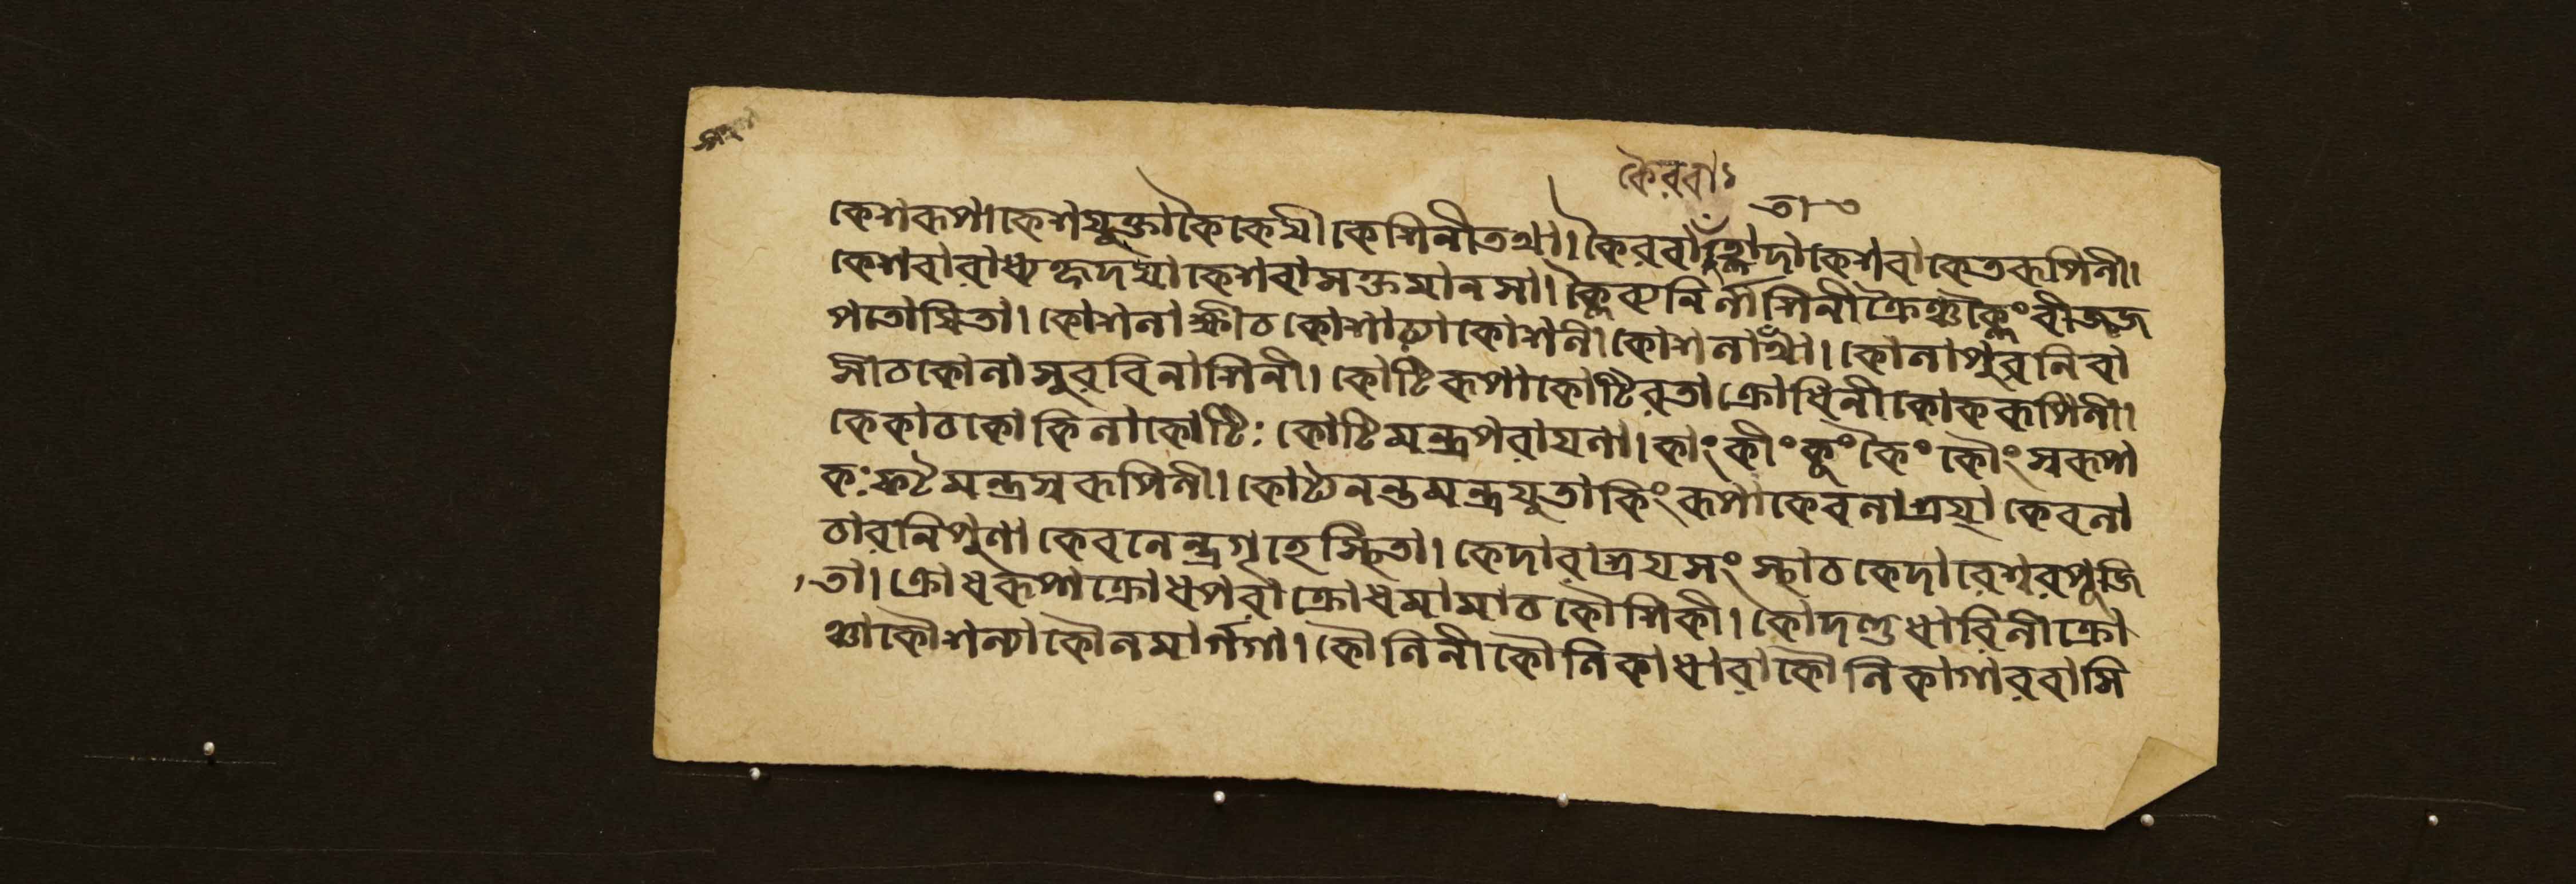 কৈরবাঃ
কেশরূপা কেশযুক্তা কৈকেয়ী কেশিনী তথা। কৈরবাহ্লাদা কেশবা কেতরূপিনী।
কেশবারাধ্যহৃদয়া কেশবাসক্তমানসা। ক্লৈব্যনির্নাশিনী ক্রৈঞ্চ ক্লৈং বীজজ
পতোষিতা। কোশলাক্ষী চ কোশাঢ্যা কোশলী কোশলাখ্যা। কোলাপুরনিবা
সী চ কোলাসুরবিনাশিনী। কোটিরূপা কোটিরতা ক্রোধিনী কোকরূপিনী।
কেকা চ কোকিলা কোটিঃ কোটিমন্ত্রপরায়না। কাং কীং কূং কৈং কৌং স্বরূপা
কঃ ফট্ মন্ত্রস্বরূপিনী। কোট্যনন্তমন্ত্রযুতা কিং রূপা কেরলাশ্রয়া কেরলা
চারনিপুণা কেরলেন্দ্রগৃহে স্থিতা। কেদারাশ্রয়সংস্থা চ কেদারেশ্বরপূজি
তা। ক্রোধরূপা ক্রোধপরা ক্রোধমামা চ কৌশিকী। কোদণ্ডধারিনী ক্রৌ
ঞ্চা কৌশল্যা কৌলমার্গগা। কৌলিনী কৌলিকাধারা কৌলিকাগারবাসি